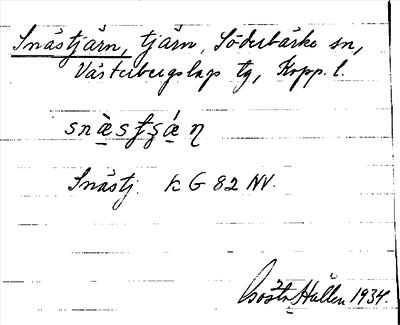 Snåstjärn, tjärn, Söderbärke sn,
Västerbergslags tg, Kopp. l.
Snåstj. k G 82 NV.
Gösta Hallen 1934.